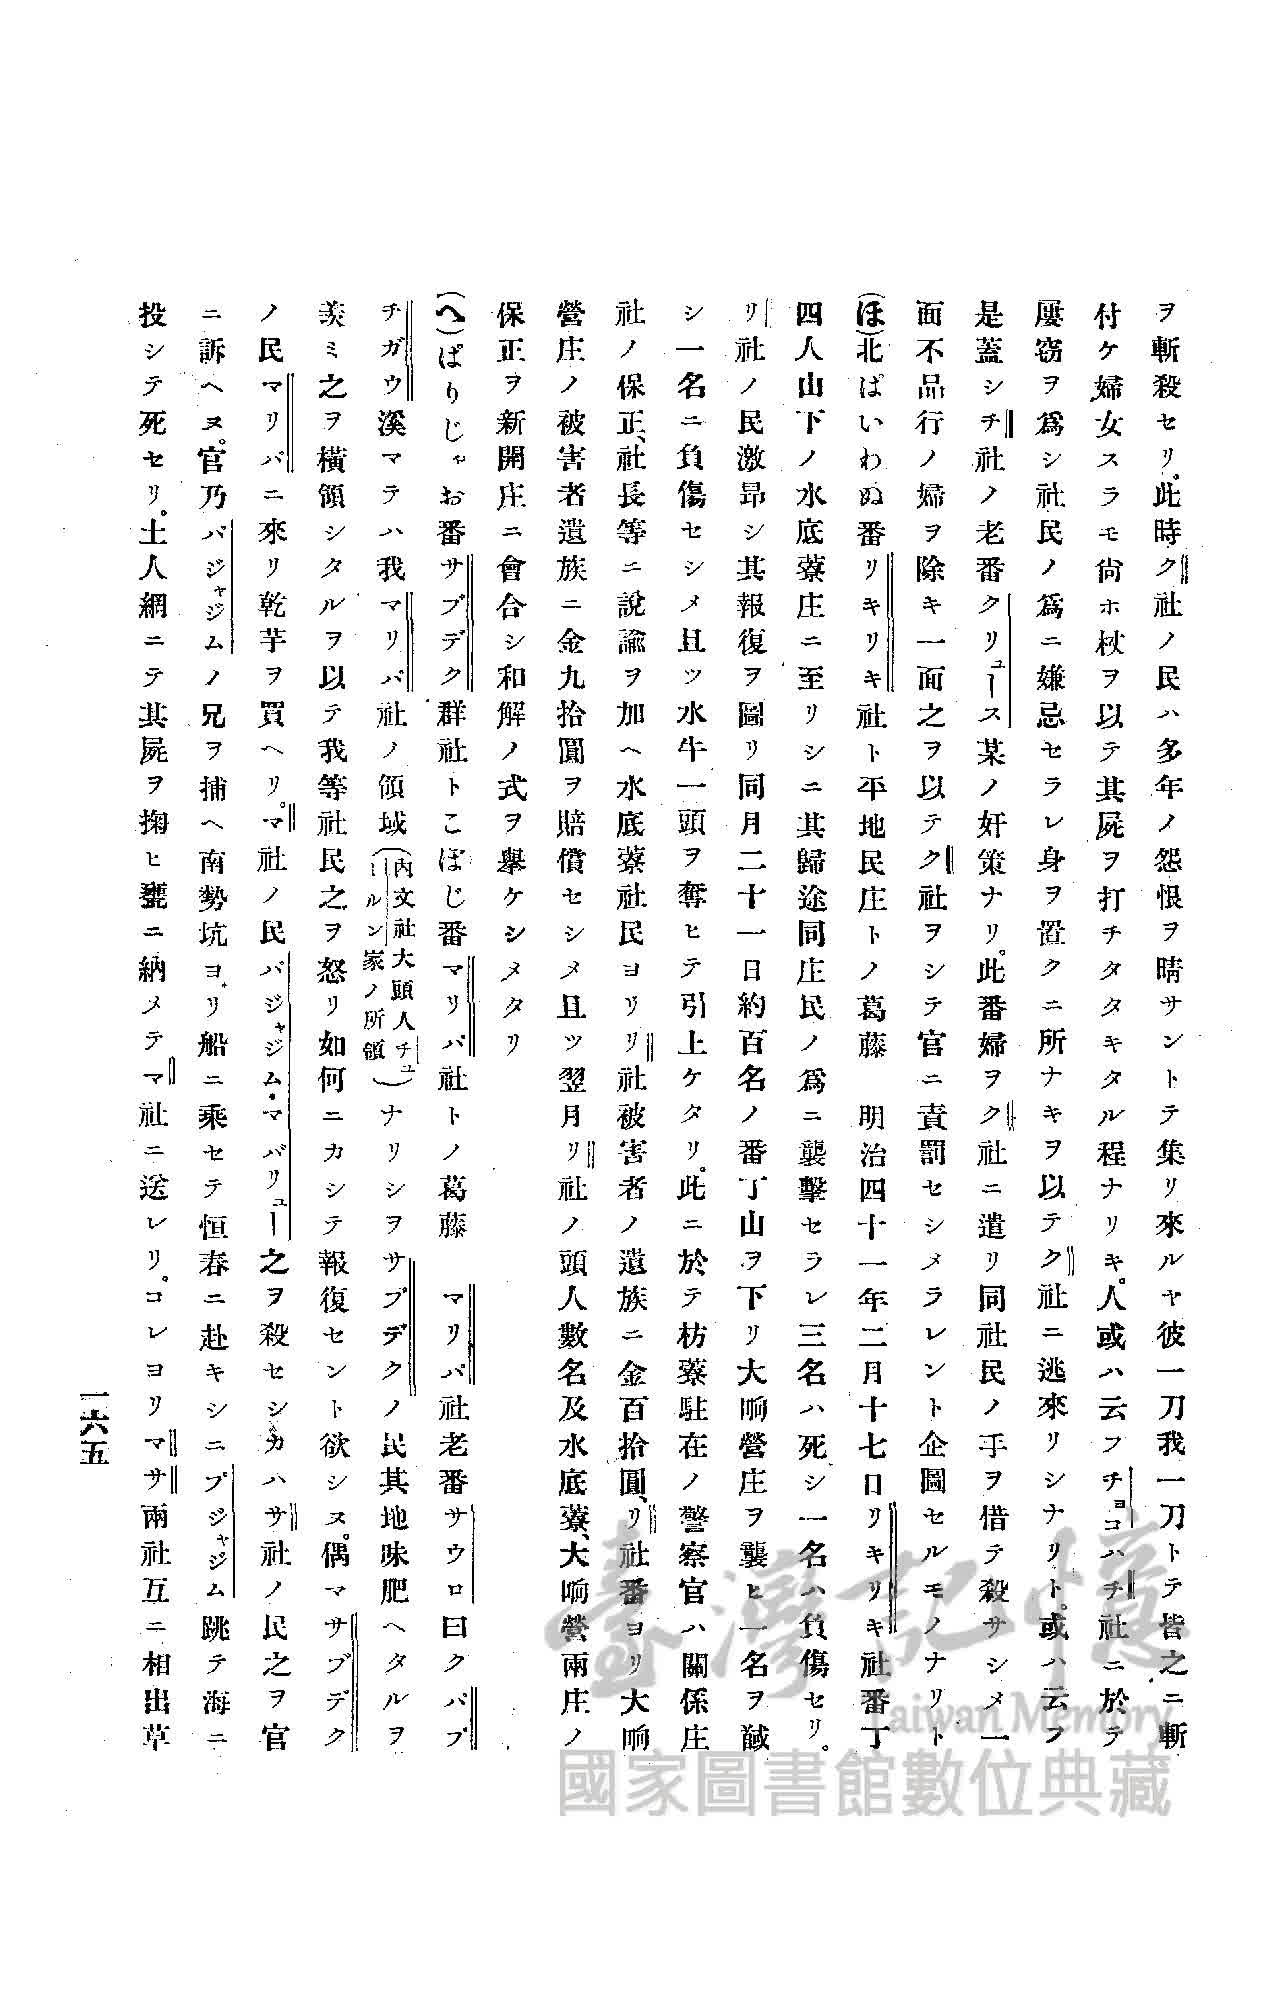 ヲ斬殺セリ。此時ク社ノ民ハ多年ノ怨恨ヲ晴サントテ集リ來ルヤ彼一刀我一刀トテ皆之ニ斬
付ケ婦女スラモ尙ホ杖ヲ以テ其屍ヲ打チタタキタル程ナリキ。人或ハ云フチヨコハチ社ニ於テ
屢窃ヲ爲シ社民ノ爲ニ嫌忌セラレ身ヲ置クニ所ナキヲ以テク社ニ逃來リシナリト。或ハ云フ
是蓋シチ社ノ老番クリュース某ノ奸策ナリ。此番婦ヲク社ニ遣リ同社民ノ手ヲ借テ殺サシメ一
面不品行ノ婦ヲ除キ一面之ヲ以テク社ヲシテ官ニ責罰セシメラレント企圖セルモノナリト
(ほ)北ぱいわぬ番リキリキ社ト平地民庄トノ葛藤　明治四十一年二月十七日リキリキ社番丁
四人山下ノ水底藔庄ニ至リシニ其歸途同庄民ノ爲ニ襲擊セラレ三名ハ死シ一名ハ負傷セリ。
リ社ノ民激昂シ其報復ヲ圖リ同月二十一日約百名ノ番丁山ヲ下リ大响營庄ヲ襲ヒ一名ヲ馘
シ一名ニ負傷セシメ且ツ水牛一頭ヲ奪ヒテ引上ケタリ。此ニ於テ枋藔駐在ノ警察官ハ關係庄
社ノ保正、社長等ニ說諭ヲ加ヘ水底藔社民ヨリリ社被害者ノ遺族ニ金百拾圓、リ社番ヨリ大响
營庄ノ被害者遺族ニ金九拾圓ヲ賠償セシメ且ツ翌月リ社ノ頭人數名及水底藔、大响營兩庄ノ
保正ヲ新開庄ニ會合シ和解ノ式ヲ擧ケシメタリ
(へ)ぱりじゃお番サブデク群社トこぼじ番マリバ社トノ葛藤　マリバ社老番サウロ曰クバブ
チガウ溪マテハ我マリバ社ノ領域(內文社大頭人チュールン家ノ所領)ナリシヲサブデクノ民其地味肥ヘタルヲ
羨ミ之ヲ橫領シタルヲ以テ我等社民之ヲ怒リ如何ニカシテ報復セント欲シヌ。偶マサブデク
ノ民マリバニ來リ乾芋ヲ買ヘリ。マ社ノ民バジャジム・マバリュー之ヲ殺セシカハサ社ノ民之ヲ官
ニ訴ヘヌ。官乃バジャジムノ兄ヲ捕ヘ南勢坑ヨリ船ニ乘セテ恒春ニ赴キシニプジャジム跳テ海ニ
投シテ死セリ。土人網ニテ其屍ヲ掬ヒ甕ニ納メテマ社ニ送レリ。コレヨリマサ兩社互ニ相出草
一六五
臺灣記憶
Taiwan Memory
國家圖書館數位典藏